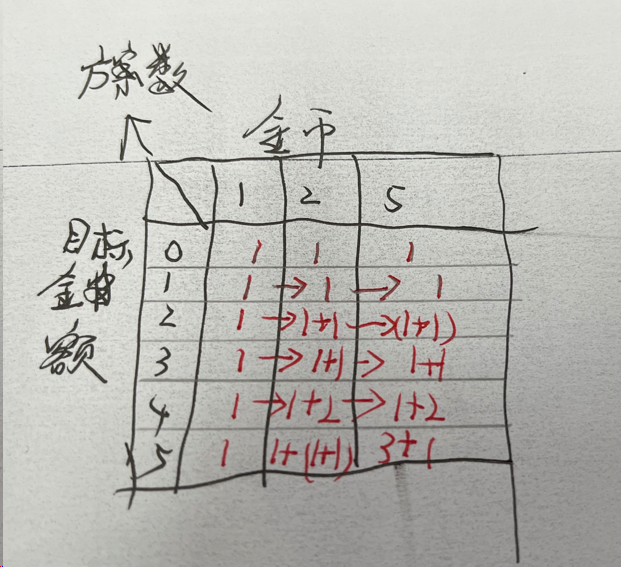 方案数
金币
1 2 5
目标
金
额
0 1 1 1
1 1 → 1 → 1
2 1 → 1+1 → (1+1)
3 1 → 1+1 → 1+1
4 1 → 1+2 → 1+2
5 1 1+(1+1) 3+1